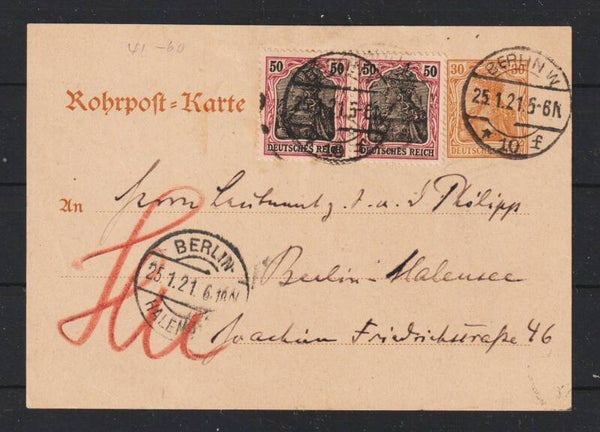 41 -60
50 50 30 30
DEUTSCHES REICH DEUTSCHES REICH
BERLIN W
25.1.21.5-6N
* 10 f
Rohrpost-Karte
An
Herrn Leutnant z. S. a. D Philipp
Berlin-Halensee
Joachim Friedrichstraße 46
BERLIN-
25.1.21. 6.10N
HALENS